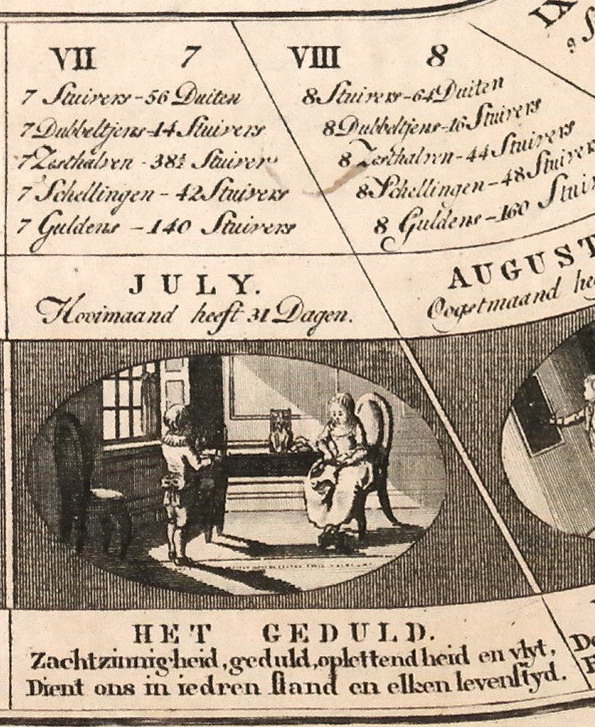 VII 7
7 Stuivers-56 Duiten
7 Dubbeltjens-14 Stuivers
7 Zesthalven-38½ Stuivers
7 Schellingen-42 Stuivers
7 Guldens-140 Stuivers
JULY.
Hooimaand heeft 31 Dagen.
HET GEDULD.
Zachtzinnigheid, geduld, oplettendheid en vlyt,
Dient ons in iedren ſtand en elken levenſtyd.
VIII 8
8 Stuivers-64 Duiten
8 Dubbeltjens-16 Stuivers
8 Zesthalven-44 Stuivers
8 Schellingen-48 Stuivers
8 Guldens-160 Stui
AUGUST
Oogstmaand hee
IX
9 S